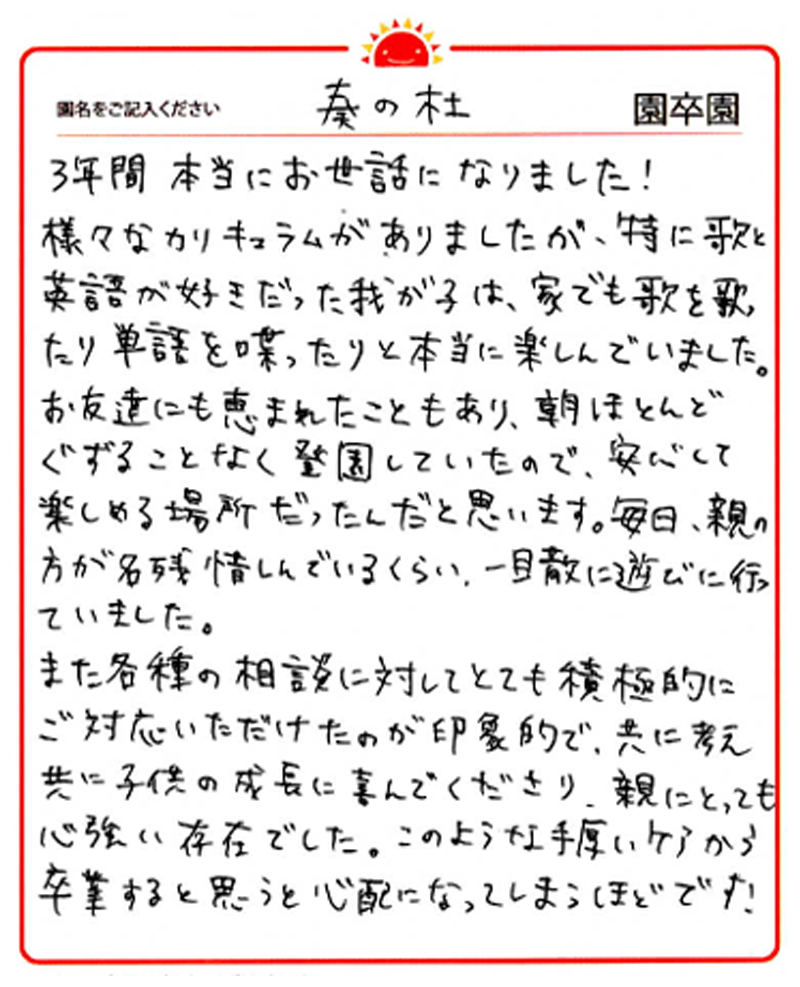 園名をご記入ください 奏の杜 園卒園
3年間 本当にお世話になりました!
様々なカリキュラムがありましたが、特に歌と
英語が好きだった我が子は、家でも歌を歌っ
たり単語を喋ったりと本当に楽しんでいました。
お友達にも恵まれたこともあり、朝ほとんど
ぐずることなく登園していたので、安心して
楽しめる場所だったんだと思います。毎日、親の
方が名残惜しんでいるくらい、一目散に遊びに行っ
ていました。
また各種の相談に対してとても積極的に
ご対応いただけたのが印象的で、共に考え
共に子供の成長に喜んでくださり、親にとっても
心強い存在でした。このような手厚いケアから
卒業すると思うと心配になってしまうほどです!